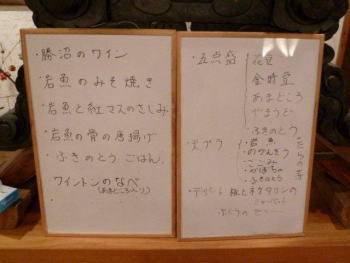 ・勝沼のワイン
・岩魚のみそ焼き
・岩魚と紅マスのさしみ
・岩魚の骨の唐揚げ
・ふきのとうごはん
ワイントンのなべ
(あまどころ入り)
・五点盛
花豆
金時豆
あまどころ
やまうど
ふきのとう
・天プラ
・岩魚
・のかんぞう
・こごみ
・かぼちゃ
・ふきのとう
たらの芽
・デザート 桃とネクタリンの
シャーベット
ぶどうの